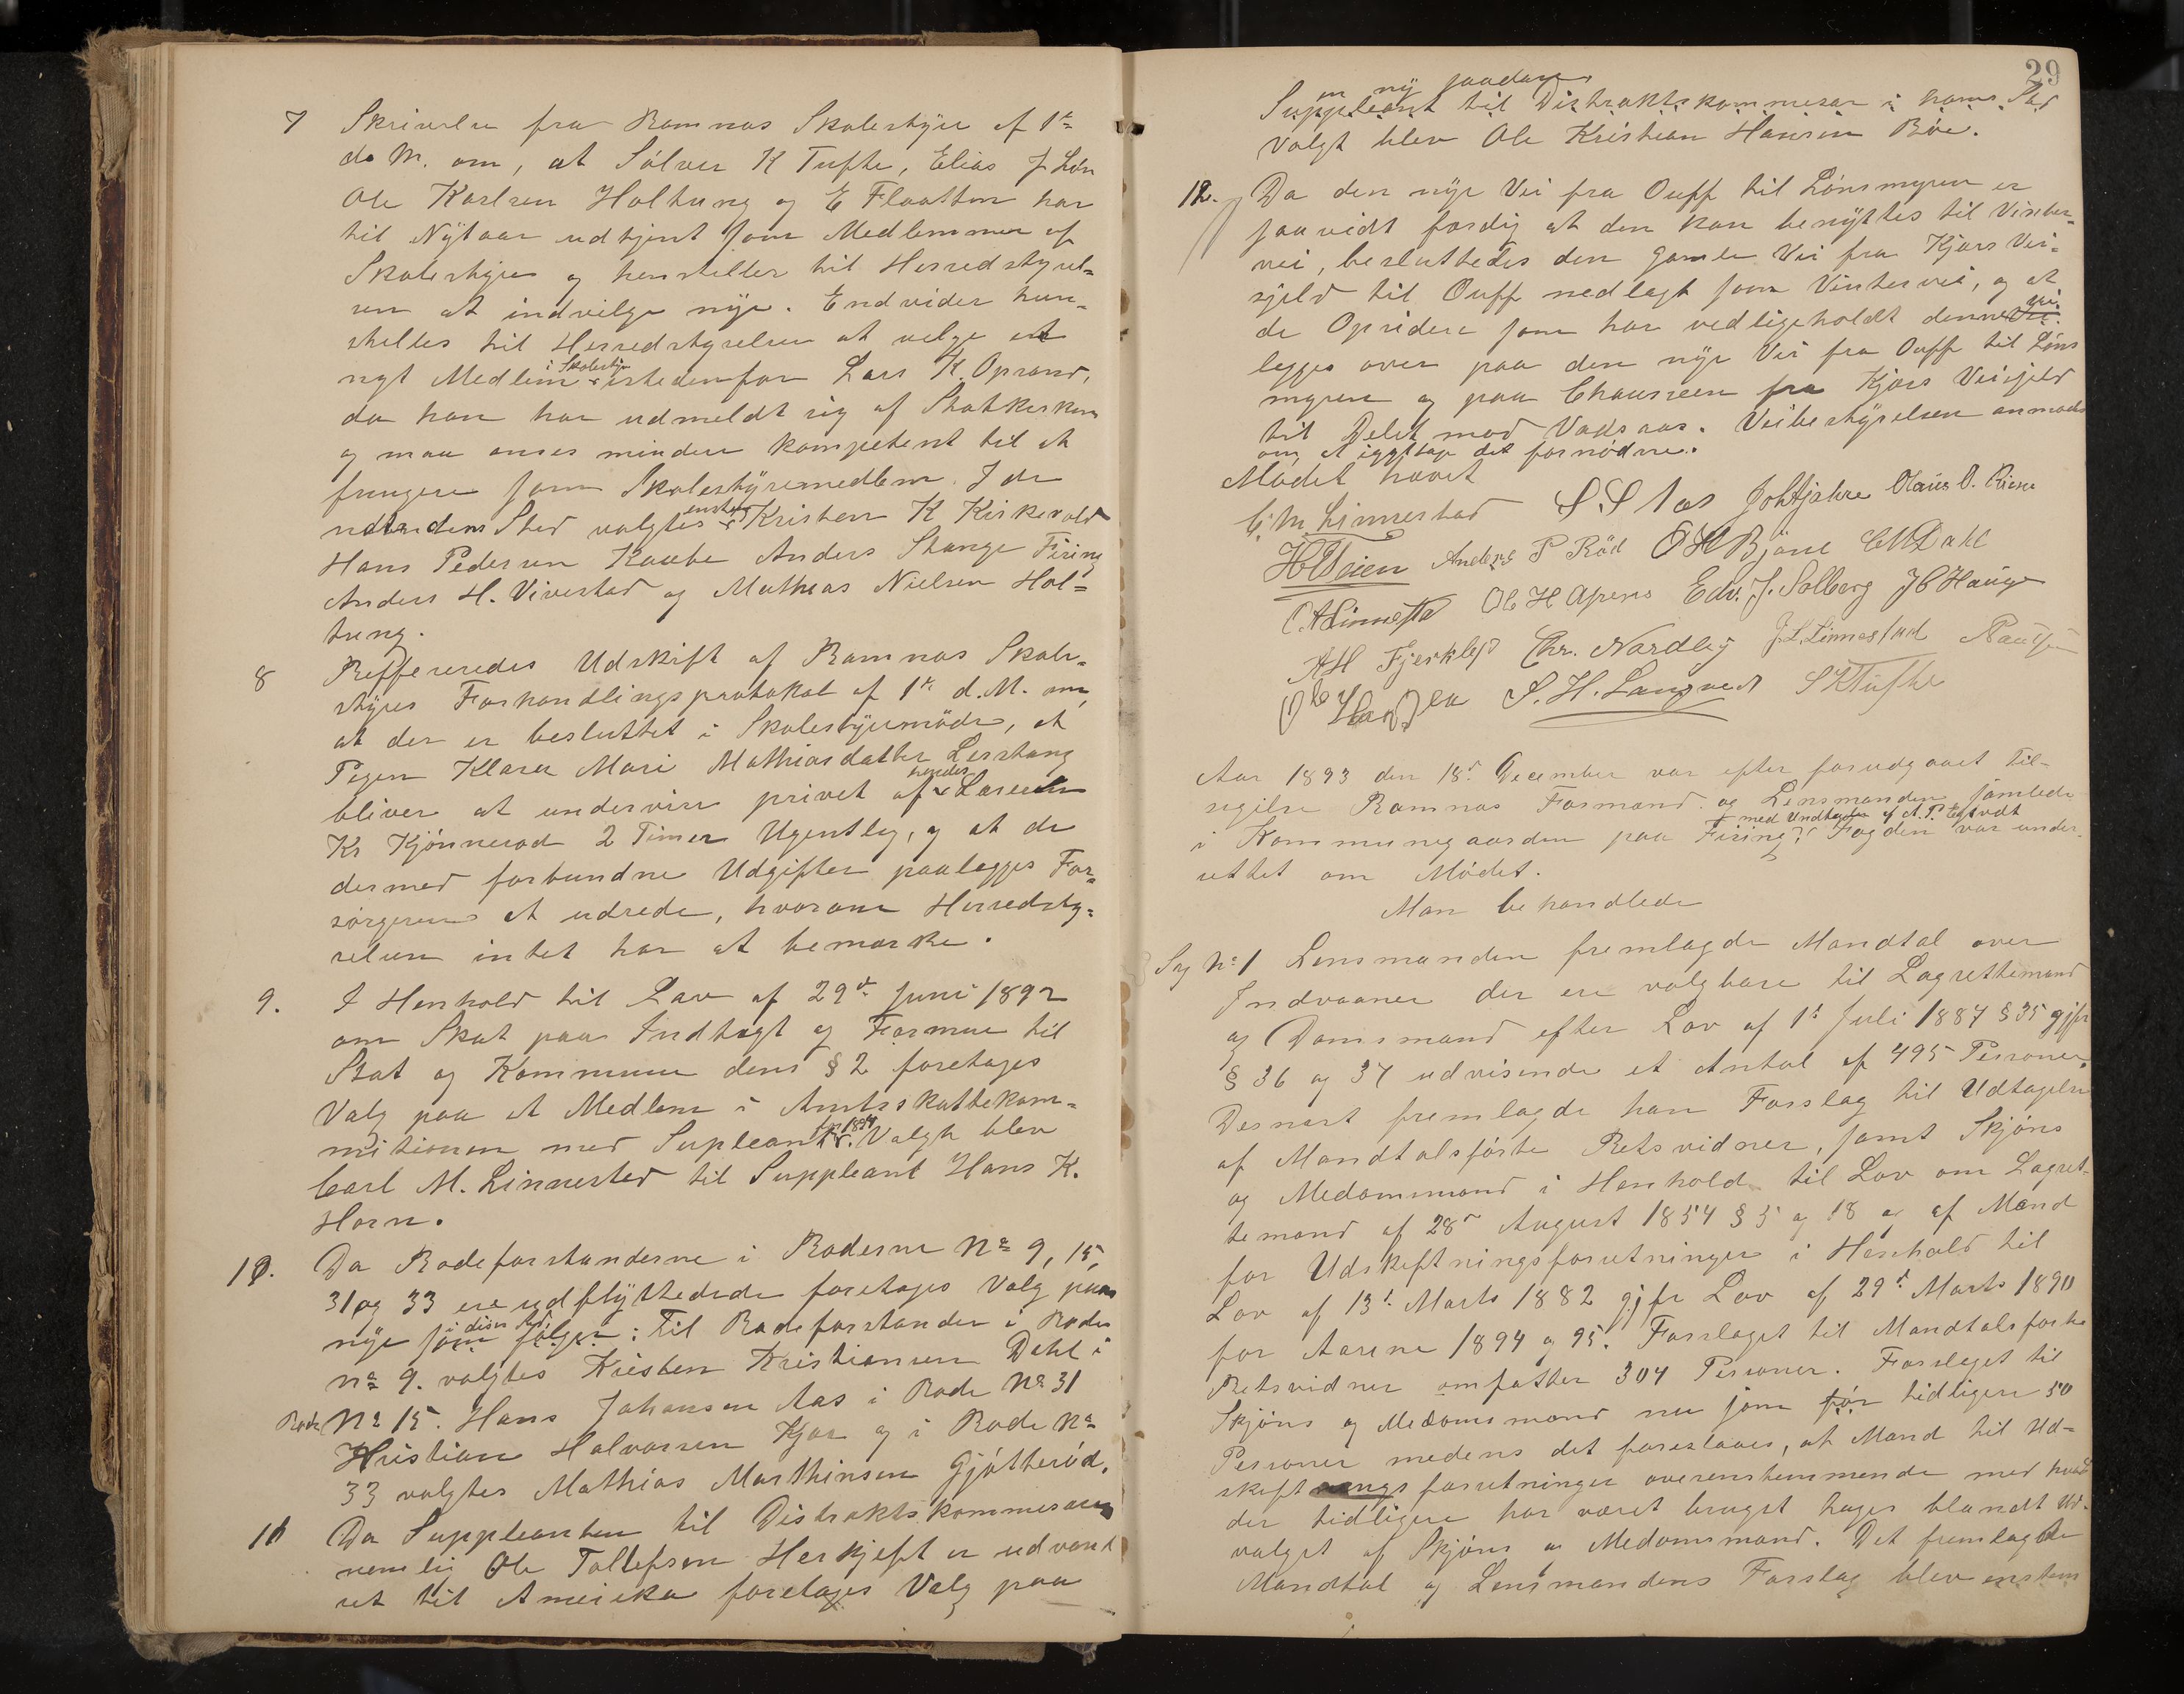 7 Skrivelse fra Ramnæs Skolestyre af 1ste
ds M. om, at Sølver K Tufte, Elias J Løn
Ole Karlsen Holtung og E Flaatten har
til Nytaar udtjent som Medlemmer af
Skolestyre og henstiller til Herredstyrel=
sen at indvælge nye. Endvidere hen=
stilles til Herredstyrelsen at vælge et
nyt Medlem i Skolestyre istedenfor Lars K. Oprand,
da han har udmeldt sig af Statskirken
og maa ansees mindre kompetent til at
fungere som Skolestyremedlem. I de
Sted valgtes Kristen K Kirkevold
Hans Pedersen Kaabe Anders Stange Firing
Anders H. Vivestad og Mathias Nielsen Hol=
tung.
8 Reffereredes Udskrift af Ramnæs Skole=
styres Forhandlingsprotokol af 1ste d.M. om,
at der er besluttet i Skolestyremøde, at
Pigen Klara Mari Mathiasdatter Lerstang
bliver at undervise privat af Læreren
Kr Kjønnerød 2 Timer Ugentlig, og at de
dermed forbundne Udgifter paalægges For=
sørgeren at udrede, hvorom Herredsty=
relsen intet har at bemærke.
9. I Henhold til Lov af 29de Juni 1892
om Skat paa Indtægt og Formue til
Stat og Kommune dens § 2 foretages
Valg paa et Medlem i Amtsskattekom=
mitionen med Supleant for 1894. Valgt blev
Carl M. Linnestad til Suppleant Hans K.
Horn.
10. Da Rodeforstanderne i Roderne No 9, 15,
31 og 33 ere udflyttede foretages Valg paa
nye i dises Sted som følger: Til Rodeforstander i Rode
No 9. valgtes Kristen Kristiansen Dehl i
Rode No 15. Hans Johansen Aas i Rode No 31
Kristian Halvorsen Kjær og i Rode No
33 valgtes Mathias Marthinsen Gjøtterød.
11 Da Suppleanten til Distriktskommesæren
nemlig Ole Tollefsen Herkjeft er udvand
ret til Amerika foretages Valg paa
29
en ny saadan
Suppleant til Distriktskommesær i hans Sted
Valgt blev Ole Kristian Hansen Bøe.
12. Da den nye Vei fra Ouff til Lønsmyren er
saavidt færdig at den kan benyttes til Vinter=
vei, besluttedes den gamle Vei fra Kjærs Vei=
sjeld til Ouff nedlagt som Vintervei, og at
de Opsidere som har vedligeholdt denne Vei
lægges over paa den nye Vei fra Ouff til Løns
myren og paa Chausseen fra Kjærs Veisjeld
til Delet mod Vadsaas. Veibestyrelsen anmodes
om at iagttage det fornødne.
Mødet hævet
C. M. Linnestad S. S. Aas Joh Hjahre Olaus O. Riene
H Weien Anders P Rød O H Bjøne C M Dahl
C. A Linnestad Ole H Apenes Edv. J. Solberg J C Hauge
A H Fjerkløp Chr. Nordby J. L. Linnestad Paulsen
Ole Hansen S. H. Langved S K Tufte
Aar 1893 den 18de December var efter forudgaaet Til=
sigelse Ramnæs Formænd og Lensmanden samlede
i Kommunegaarden paa Firing med Undtagelse af A. P. . Fogden var under=
rettet om Mødet.
Man behandlede
Sag No 1 Lensmanden fremlagde Mandtal over
Indvaanere der ere valgbare til Lagrettemænd
og Domsmænd efter Lov af 1ste Juli 1887 § 35 gjfr
§ 36 og 37 udvisende et Antal af 495 Personer.
Desnæst fremlagde han Forslag til Udtagelse
af Mandtalsførte Retsvidner, samt Skjøns
og Medomsmænd i Henhold til Lov om Lagret=
temænd af 28de August 1854 § 5 og 18 og af Mænd
for Udskiftningsforretninger i Henhold til
Lov af 13de Marts 1882 gjfr Lov af 29de Marts 1890
for Aarene 1894 og 95. Forslaget til Mandtalsførte
Retsvidner omfatter 304 Personer. Forslaget til
Skjøns og Medomsmænd nu som før tidligere 50
Personer medens det foreslaaes, at Mænd til Ud=
skiftnings forretninger overensstemmende med hvad
der tidligere har været brugt tages blandt Ud=
valget af Skjøns og Medomsmænd. Det fremlagde
Mandtal og Lensmandens Forslag blev enstem